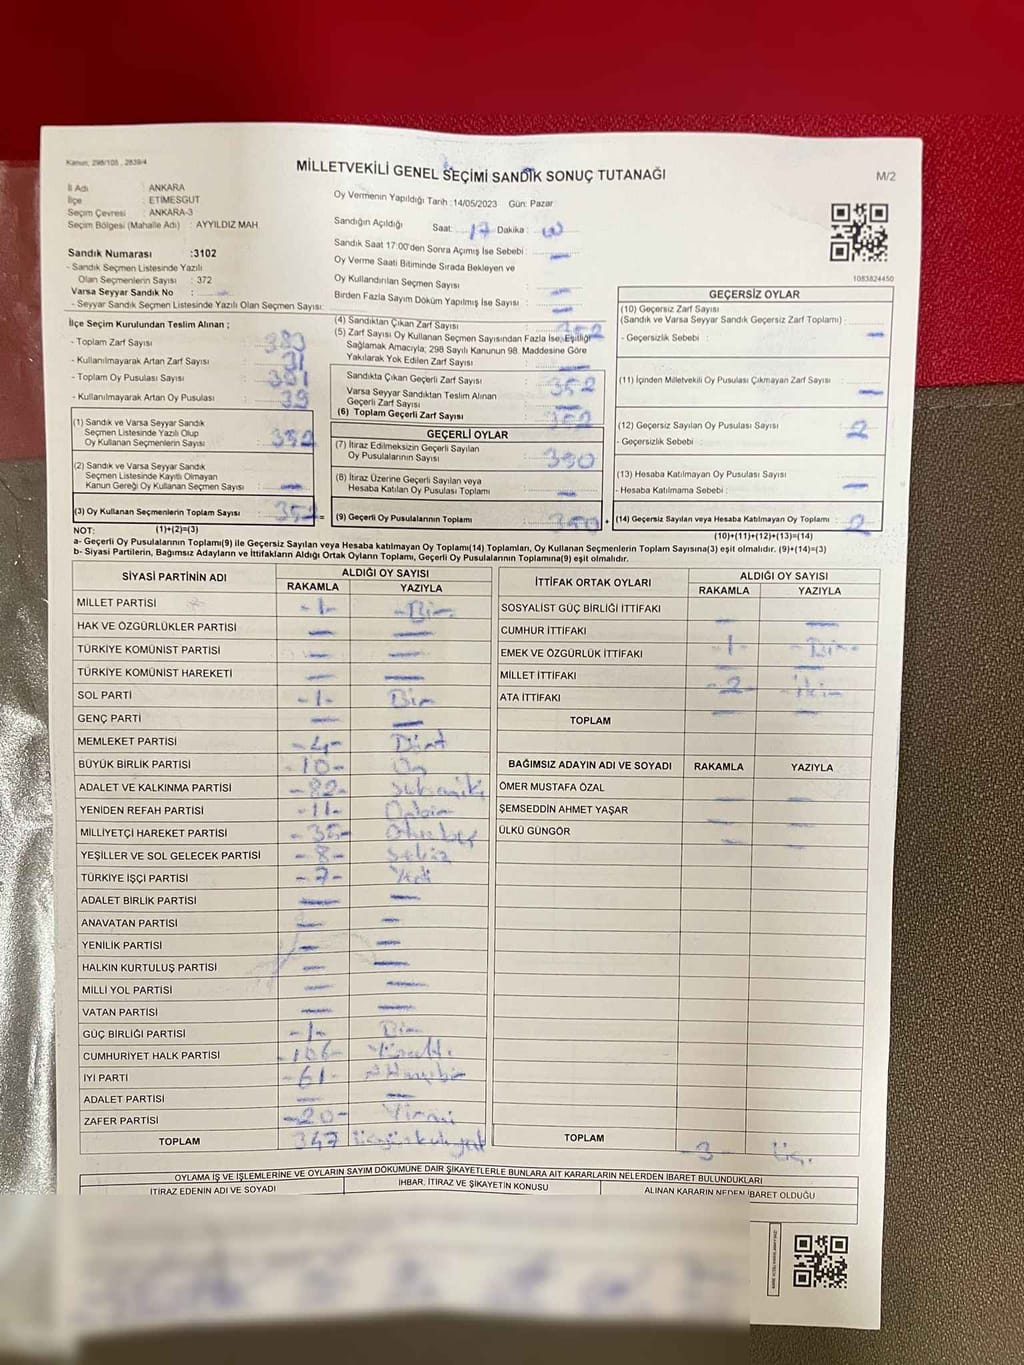 Kanun, 298/105 , 2839/4
MİLLETVEKİLİ GENEL SEÇİMİ SANDIK SONUÇ TUTANAĞI
M/2
İl Adı : ANKARA
İlçe : ETİMESGUT
Seçim Çevresi : ANKARA-3
Seçim Bölgesi (Mahalle Adı) : AYYILDIZ MAH
Sandık Numarası :3102
- Sandık Seçmen Listesinde Yazılı
Olan Seçmenlerin Sayısı : 372
Varsa Seyyar Sandık No :
- Seyyar Sandık Seçmen Listesinde Yazılı Olan Seçmen Sayısı:
Oy Vermenin Yapıldığı Tarih :14/05/2023 Gün: Pazar
Sandığın Açıldığı Saat: 17 Dakika :
Sandık Saat 17:00'den Sonra Açımış İse Sebebi :
Oy Verme Saati Bitiminde Sırada Bekleyen ve
Oy Kullandırılan Seçmen Sayısı :
Birden Fazla Sayım Döküm Yapılmış İse Sayısı :
1083824450
İlçe Seçim Kurulundan Teslim Alınan ;
- Toplam Zarf Sayısı : 383
- Kullanılmayarak Artan Zarf Sayısı : 31
- Toplam Oy Pusulası Sayısı :
- Kullanılmayarak Artan Oy Pusulası : 39
(1) Sandık ve Varsa Seyyar Sandık
Seçmen Listesinde Yazılı Olup
Oy Kullanan Seçmenlerin Sayısı : 352
(2) Sandık ve Varsa Seyyar Sandık
Seçmen Listesinde Kayıtlı Olmayan
Kanun Gereği Oy Kullanan Seçmen Sayısı : —
(3) Oy Kullanan Seçmenlerin Toplam Sayısı : 352 =
(4) Sandıktan Çıkan Zarf Sayısı : 352
(5) Zarf Sayısı Oy Kullanan Seçmen Sayısından Fazla İse, Eşitliği
Sağlamak Amacıyla; 298 Sayılı Kanunun 98. Maddesine Göre
Yakılarak Yok Edilen Zarf Sayısı : —
Sandıkta Çıkan Geçerli Zarf Sayısı : 352
Varsa Seyyar Sandıktan Teslim Alınan
Geçerli Zarf Sayısı : —
(6) Toplam Geçerli Zarf Sayısı : 352
GEÇERLİ OYLAR
(7) İtiraz Edilmeksizin Geçerli Sayılan
Oy Pusulalarının Sayısı : 350
(8) İtiraz Üzerine Geçerli Sayılan veya
Hesaba Katılan Oy Pusulası Toplamı : —
(9) Geçerli Oy Pusulalarının Toplamı : 350 +
GEÇERSİZ OYLAR
(10) Geçersiz Zarf Sayısı
(Sandık ve Varsa Seyyar Sandık Geçersiz Zarf Toplamı) :
- Geçersizlik Sebebi : —
(11) İçinden Milletvekili Oy Pusulası Çıkmayan Zarf Sayısı : —
(12) Geçersiz Sayılan Oy Pusulası Sayısı : 2
- Geçersizlik Sebebi :
(13) Hesaba Katılmayan Oy Pusulası Sayısı :
- Hesaba Katılmama Sebebi : —
(14) Geçersiz Sayılan veya Hesaba Katılmayan Oy Toplamı : 2
NOT: (1)+(2)=(3) (10)+(11)+(12)+(13)=(14)
a- Geçerli Oy Pusulalarının Toplamı(9) ile Geçersiz Sayılan veya Hesaba katılmayan Oy Toplamı(14) Toplamları, Oy Kullanan Seçmenlerin Toplam Sayısına(3) eşit olmalıdır. (9)+(14)=(3)
b- Siyasi Partilerin, Bağımsız Adayların ve İttifakların Aldığı Ortak Oyların Toplamı, Geçerli Oy Pusulalarının Toplamına(9) eşit olmalıdır.
SİYASİ PARTİNİN ADI ALDIĞI OY SAYISI
RAKAMLA YAZIYLA
MİLLET PARTİSİ -1- -Bir-
HAK VE ÖZGÜRLÜKLER PARTİSİ — —
TÜRKİYE KOMÜNİST PARTİSİ — —
TÜRKİYE KOMÜNİST HAREKETİ — —
SOL PARTİ -1- Bir
GENÇ PARTİ — —
MEMLEKET PARTİSİ -4- Dört
BÜYÜK BİRLİK PARTİSİ -10- On
ADALET VE KALKINMA PARTİSİ -82- Sekseniki
YENİDEN REFAH PARTİSİ -11- Onbir
MİLLİYETÇİ HAREKET PARTİSİ -35- Otuzbeş
YEŞİLLER VE SOL GELECEK PARTİSİ -8- Sekiz
TÜRKİYE İŞÇİ PARTİSİ -7- Yedi
ADALET BİRLİK PARTİSİ — —
ANAVATAN PARTİSİ — —
YENİLİK PARTİSİ — —
HALKIN KURTULUŞ PARTİSİ — —
MİLLİ YOL PARTİSİ — —
VATAN PARTİSİ — —
GÜÇ BİRLİĞİ PARTİSİ -1- Bir
CUMHURİYET HALK PARTİSİ -106- Yüzaltı
İYİ PARTİ -61- Altmışbir
ADALET PARTİSİ — —
ZAFER PARTİSİ -20- Yirmi
TOPLAM 347 üçyüzkırkyedi
İTTİFAK ORTAK OYLARI ALDIĞI OY SAYISI
RAKAMLA YAZIYLA
SOSYALİST GÜÇ BİRLİĞİ İTTİFAKI — —
CUMHUR İTTİFAKI -1- -Bir-
EMEK VE ÖZGÜRLÜK İTTİFAKI — —
MİLLET İTTİFAKI -2- -İki-
ATA İTTİFAKI — —
TOPLAM
BAĞIMSIZ ADAYIN ADI VE SOYADI RAKAMLA YAZIYLA
ÖMER MUSTAFA ÖZAL — —
ŞEMSEDDİN AHMET YAŞAR — —
ÜLKÜ GÜNGÖR — —
TOPLAM -3- Üç.
OYLAMA İŞ VE İŞLEMLERİNE VE OYLARIN SAYIM DÖKÜMÜNE DAİR ŞİKAYETLERLE BUNLARA AİT KARARLARIN NELERDEN İBARET BULUNDUKLARI
İTİRAZ EDENİN ADI VE SOYADI İHBAR, İTİRAZ VE ŞİKAYETİN KONUSU ALINAN KARARIN NEDEN İBARET OLDUĞU